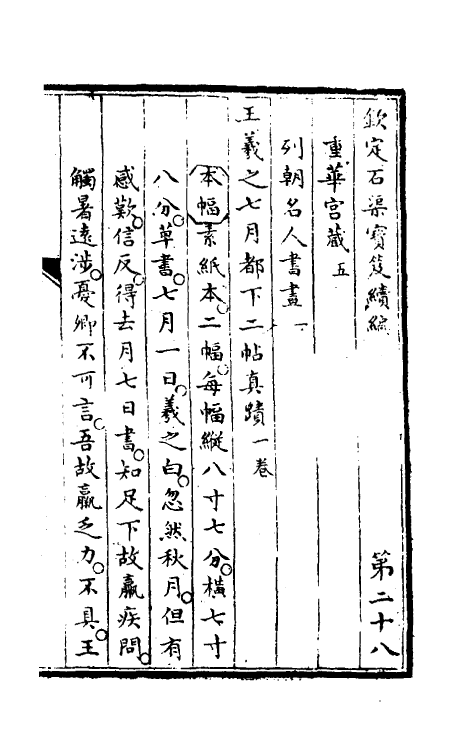 欽定石渠寶笈續編 第二十八
重華宮藏五
列朝名人書畫一
王羲之七月都下二帖真蹟一卷
本幅素紙本二幅每幅縱八寸七分橫七寸
八分草書七月一日羲之白忽然秋月但有
感歎信反得去月七日書知足下故羸疾問
觸暑遠涉憂卿不可言吾故羸乏力不具王